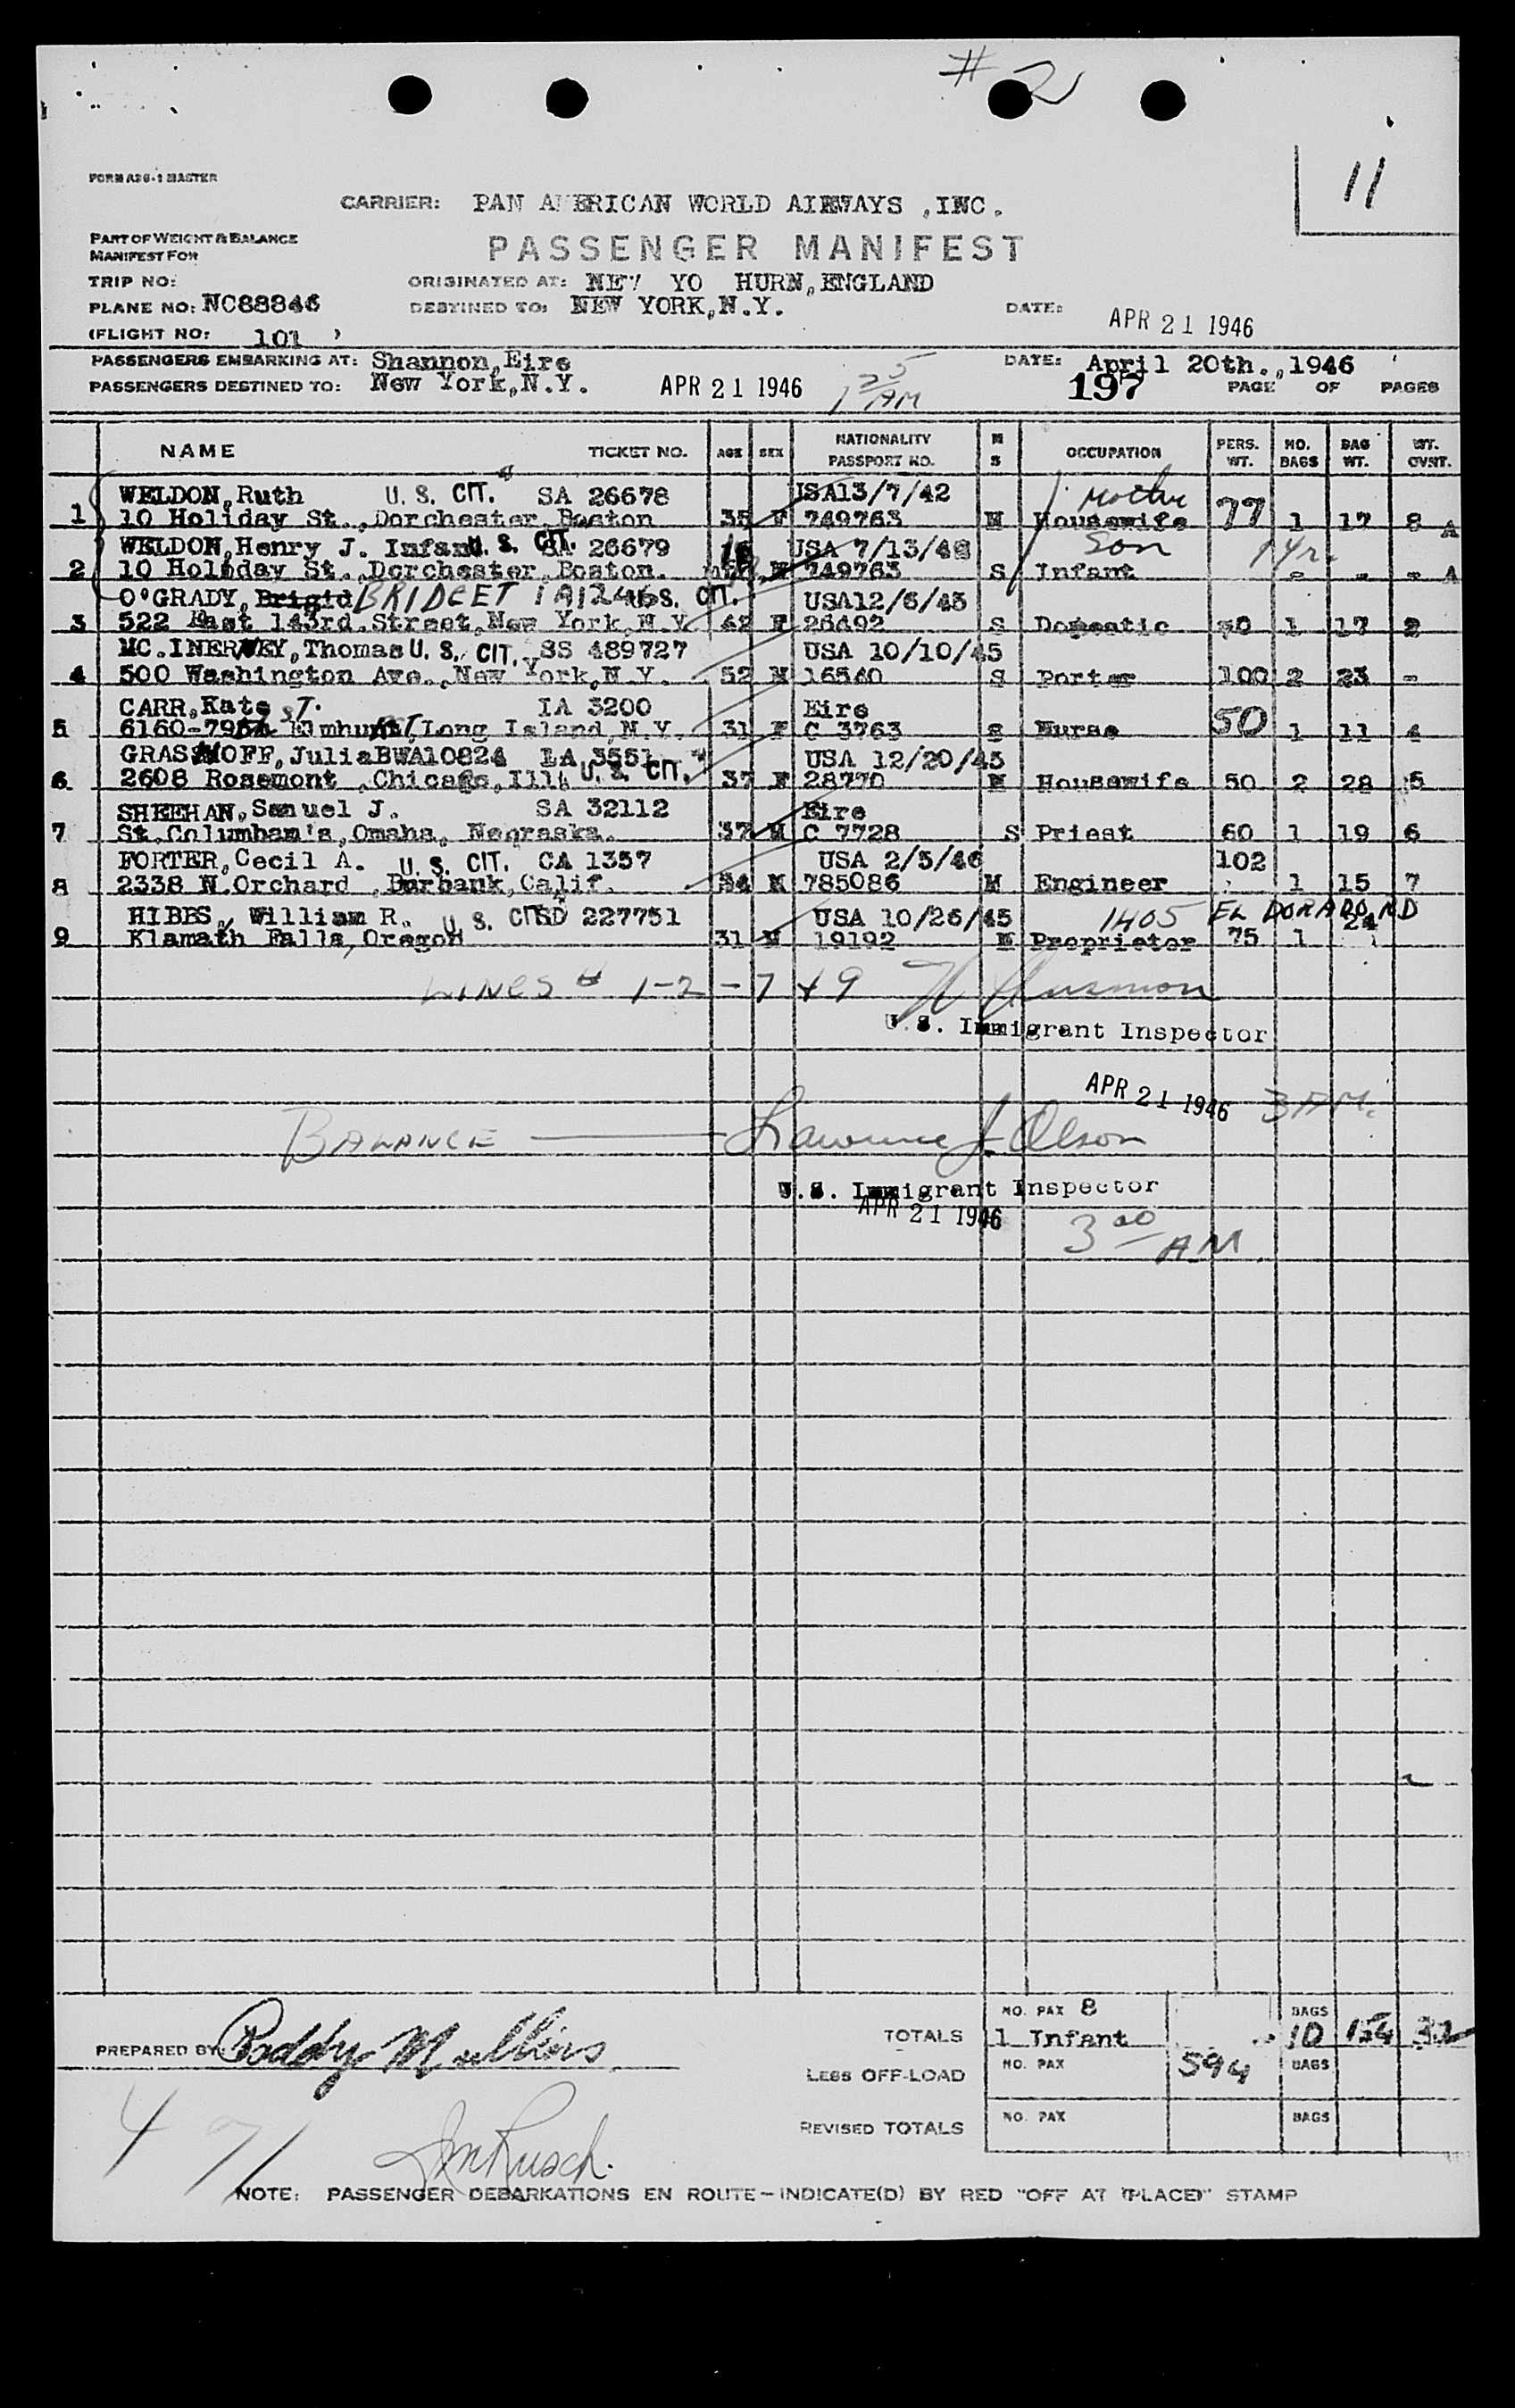 # 2
11
FORM A26-1 MASTER
CARRIER: PAN AMERICAN WORLD AIRWAYS ,INC.
PART OF WEIGHT & BALANCE
MANIFEST FOR
PASSENGER MANIFEST
TRIP NO: ORIGINATED AT: NEW YO HURN, ENGLAND
PLANE NO: NC88846 DESTINED TO: NEW YORK,N.Y. DATE: APR 21 1946
(FLIGHT NO: 101 )
PASSENGERS EMBARKING AT: Shannon,Eire DATE: April 20th.,1946
PASSENGERS DESTINED TO: New York,N.Y. APR 21 1946 1 25 AM 197 PAGE OF PAGES
NAME TICKET NO. AGE SEX NATIONALITY PASSPORT NO. M S OCCUPATION PERS. WT. NO. BAGS BAG WT. WT. OVNT.
WELDON,Ruth U. S. CIT. SA 26678 USA13/7/42 Mother
1 10 Holiday St.,Dorchester,Boston 35 F 749763 M Housewife 77 1 17 8 A
WELDON,Henry J. Infant U. S. CIT. SA 26679 USA 7/13/42 Son 1 yr.
2 10 Holiday St.,Dorchester,Boston. M 749763 S Infant - - - A
O'GRADY, Brigid BRIDGET IA1246 U.S. CIT. USA12/6/45
3 522 East 143rd.Street,New York,N.Y. 42 F 26492 S Domestic 1 17 2
MC.INERNEY,Thomas U. S. CIT. SS 489727 USA 10/10/45
4 500 Washington Ave.,New York,N.Y. 52 M 16540 S Porter 100 2 23 -
CARR,Kate IA 3200 Eire
5 6160-79 ST. Elmhurst,Long Island,N.Y. 31 F C 3763 S Nurse 50 1 11 4
GRASHOFF,Julia BWA10824 LA 3551 USA 12/20/45
6 2608 Rosemont ,Chicago,Ill. U. S. CIT. 37 F 28770 M Housewife 50 2 28 5
SHEEHAN,Samuel J. SA 32112 Eire
7 St.Columban's,Omaha, Nebraska. 37 M C 7728 S Priest 60 1 19 6
FORTER,Cecil A. U. S. CIT. CA 1357 USA 2/5/46 102
8 2338 N.Orchard ,Burbank,Calif. 34 M 785086 M Engineer 1 15 7
HIBBS, William R. U. S. CIT. SD 227751 USA 10/26/45 1405 EL DORADO RD
9 Klamath Falls,Oregon 31 M 19192 M Proprietor 75 1 24
LINES # 1-2-7 & 9
U.S. Immigrant Inspector
APR 21 1946 3 AM.
BALANCE Lawrence J. Olson
U.S. Immigrant Inspector
APR 21 1946
3 00 AM
NO. PAX 8 BAGS
TOTALS 1 Infant 10 154 32
PREPARED BY: Paddy Mullins
LESS OFF-LOAD NO. PAX 594 BAGS
REVISED TOTALS NO. PAX BAGS
4 71 Rusch.
NOTE: PASSENGER DEBARKATIONS EN ROUTE—INDICATE(D) BY RED "OFF AT (PLACE)" STAMP